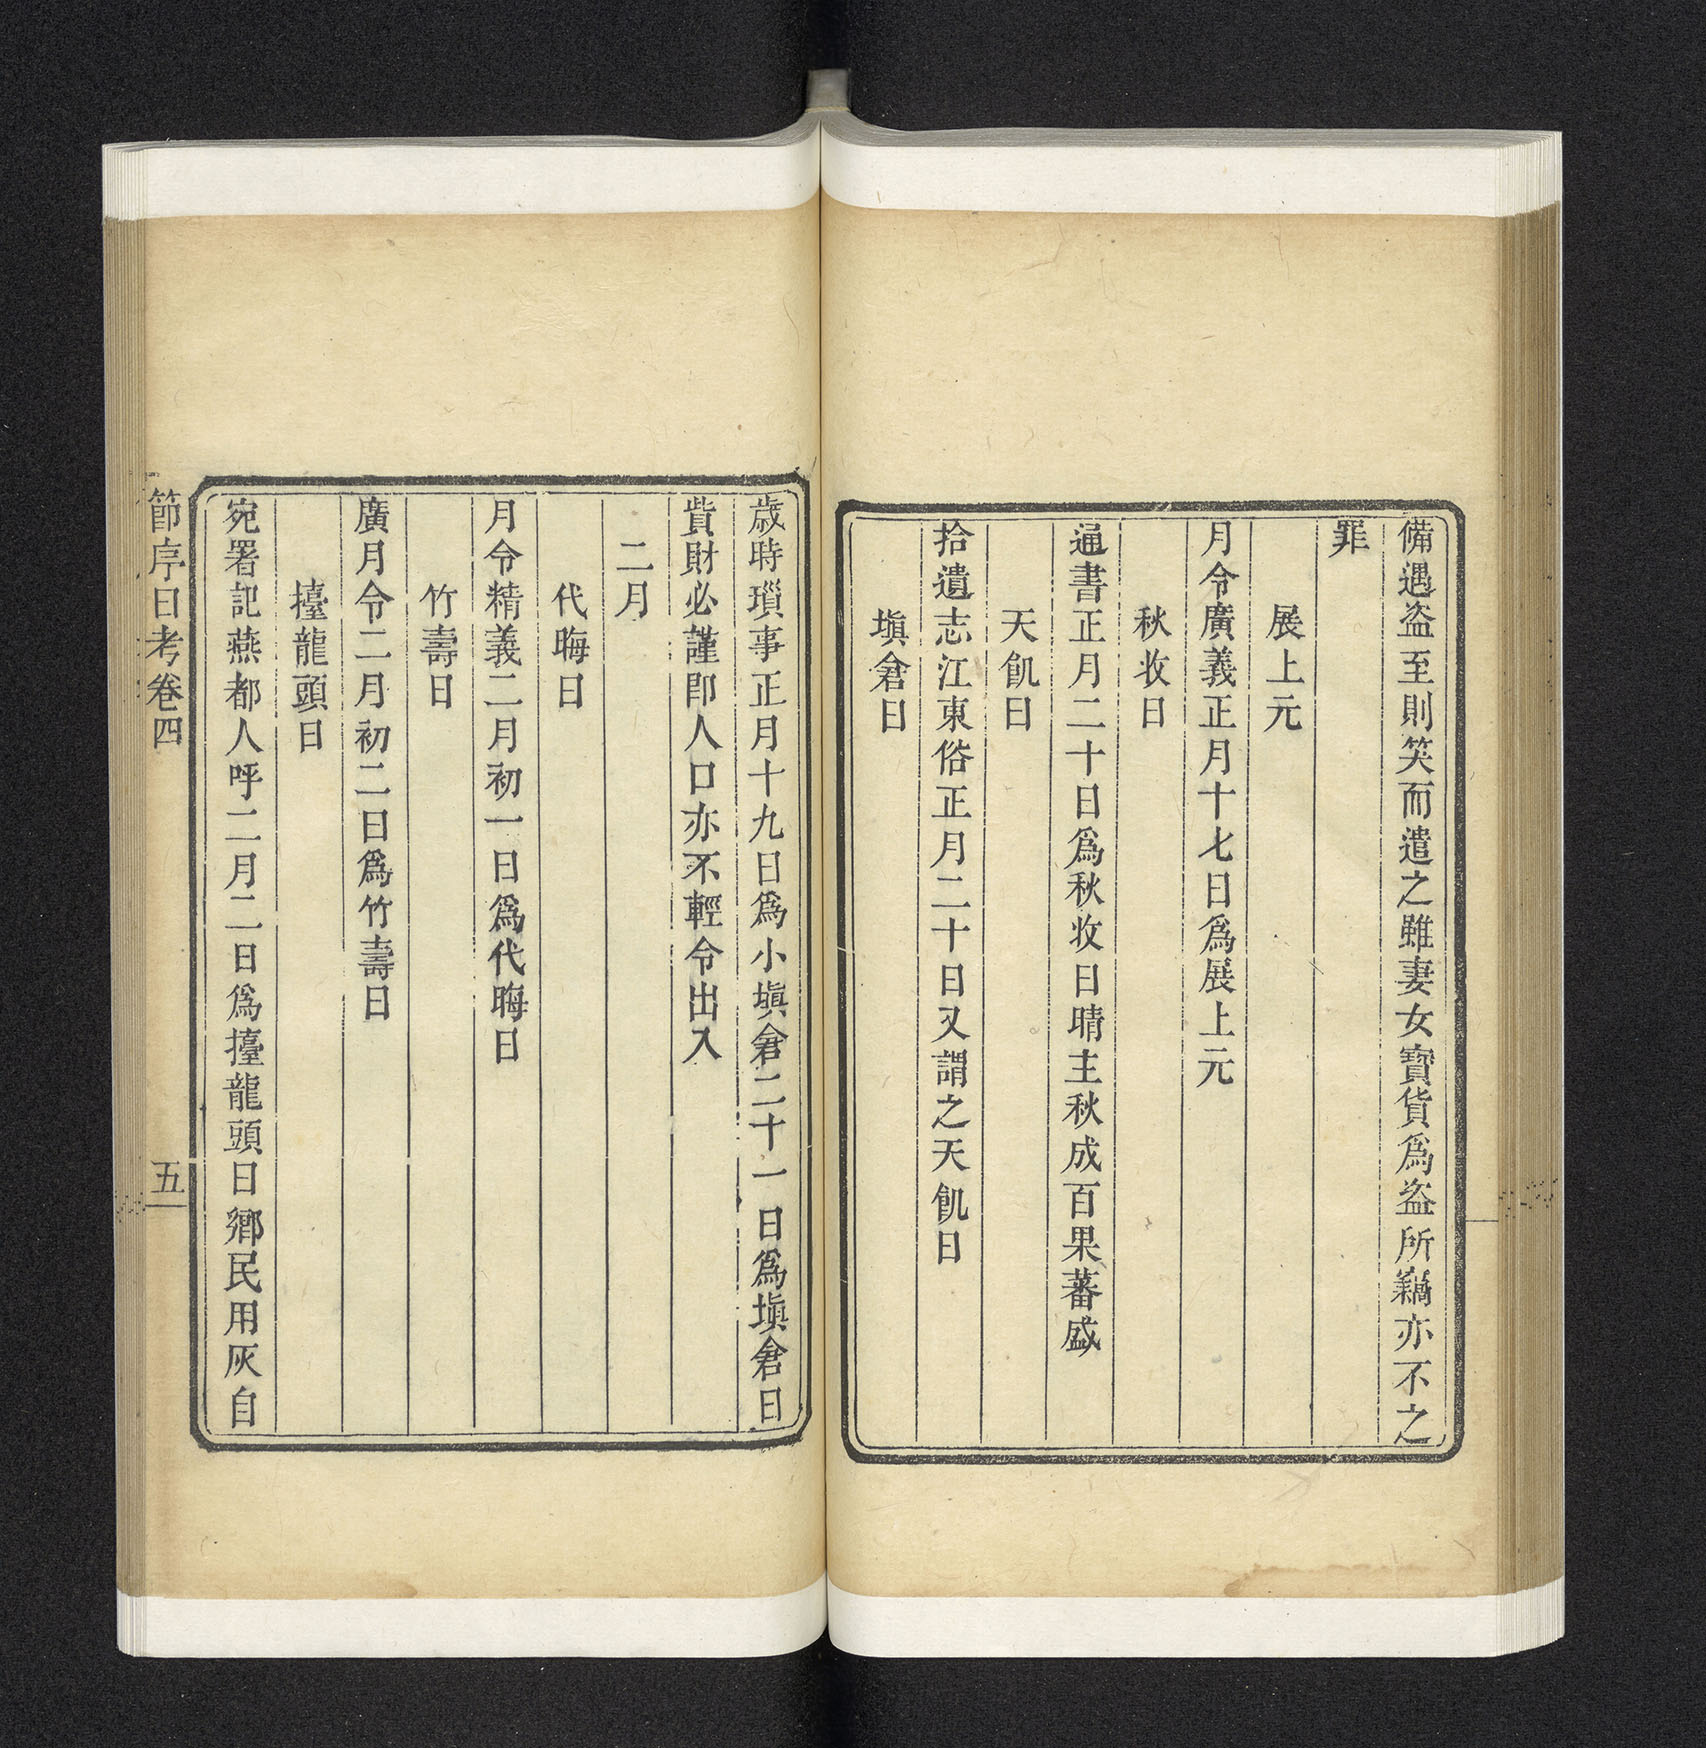 備遇盗至則笑而遣之雖妻女寶貨爲盗所竊亦不之
罪
展上元
月令廣義正月十七日爲展上元
秋收日
通書正月二十日爲秋收日晴主秋成百果蕃盛
天飢日
拾遺志江東俗正月二十日又謂之天飢日
塡倉日
歲時瑣事正月十九日爲小塡倉二十一日爲塡倉日
貲財必謹卽人口亦不輕令出入
二月
代晦日
月令精義二月初一日爲代晦日
竹壽日
廣月令二月初二日爲竹壽日
擡龍頭日
宛署記燕都人呼二月二日爲擡龍頭日鄉民用灰自
節序日考卷四
五